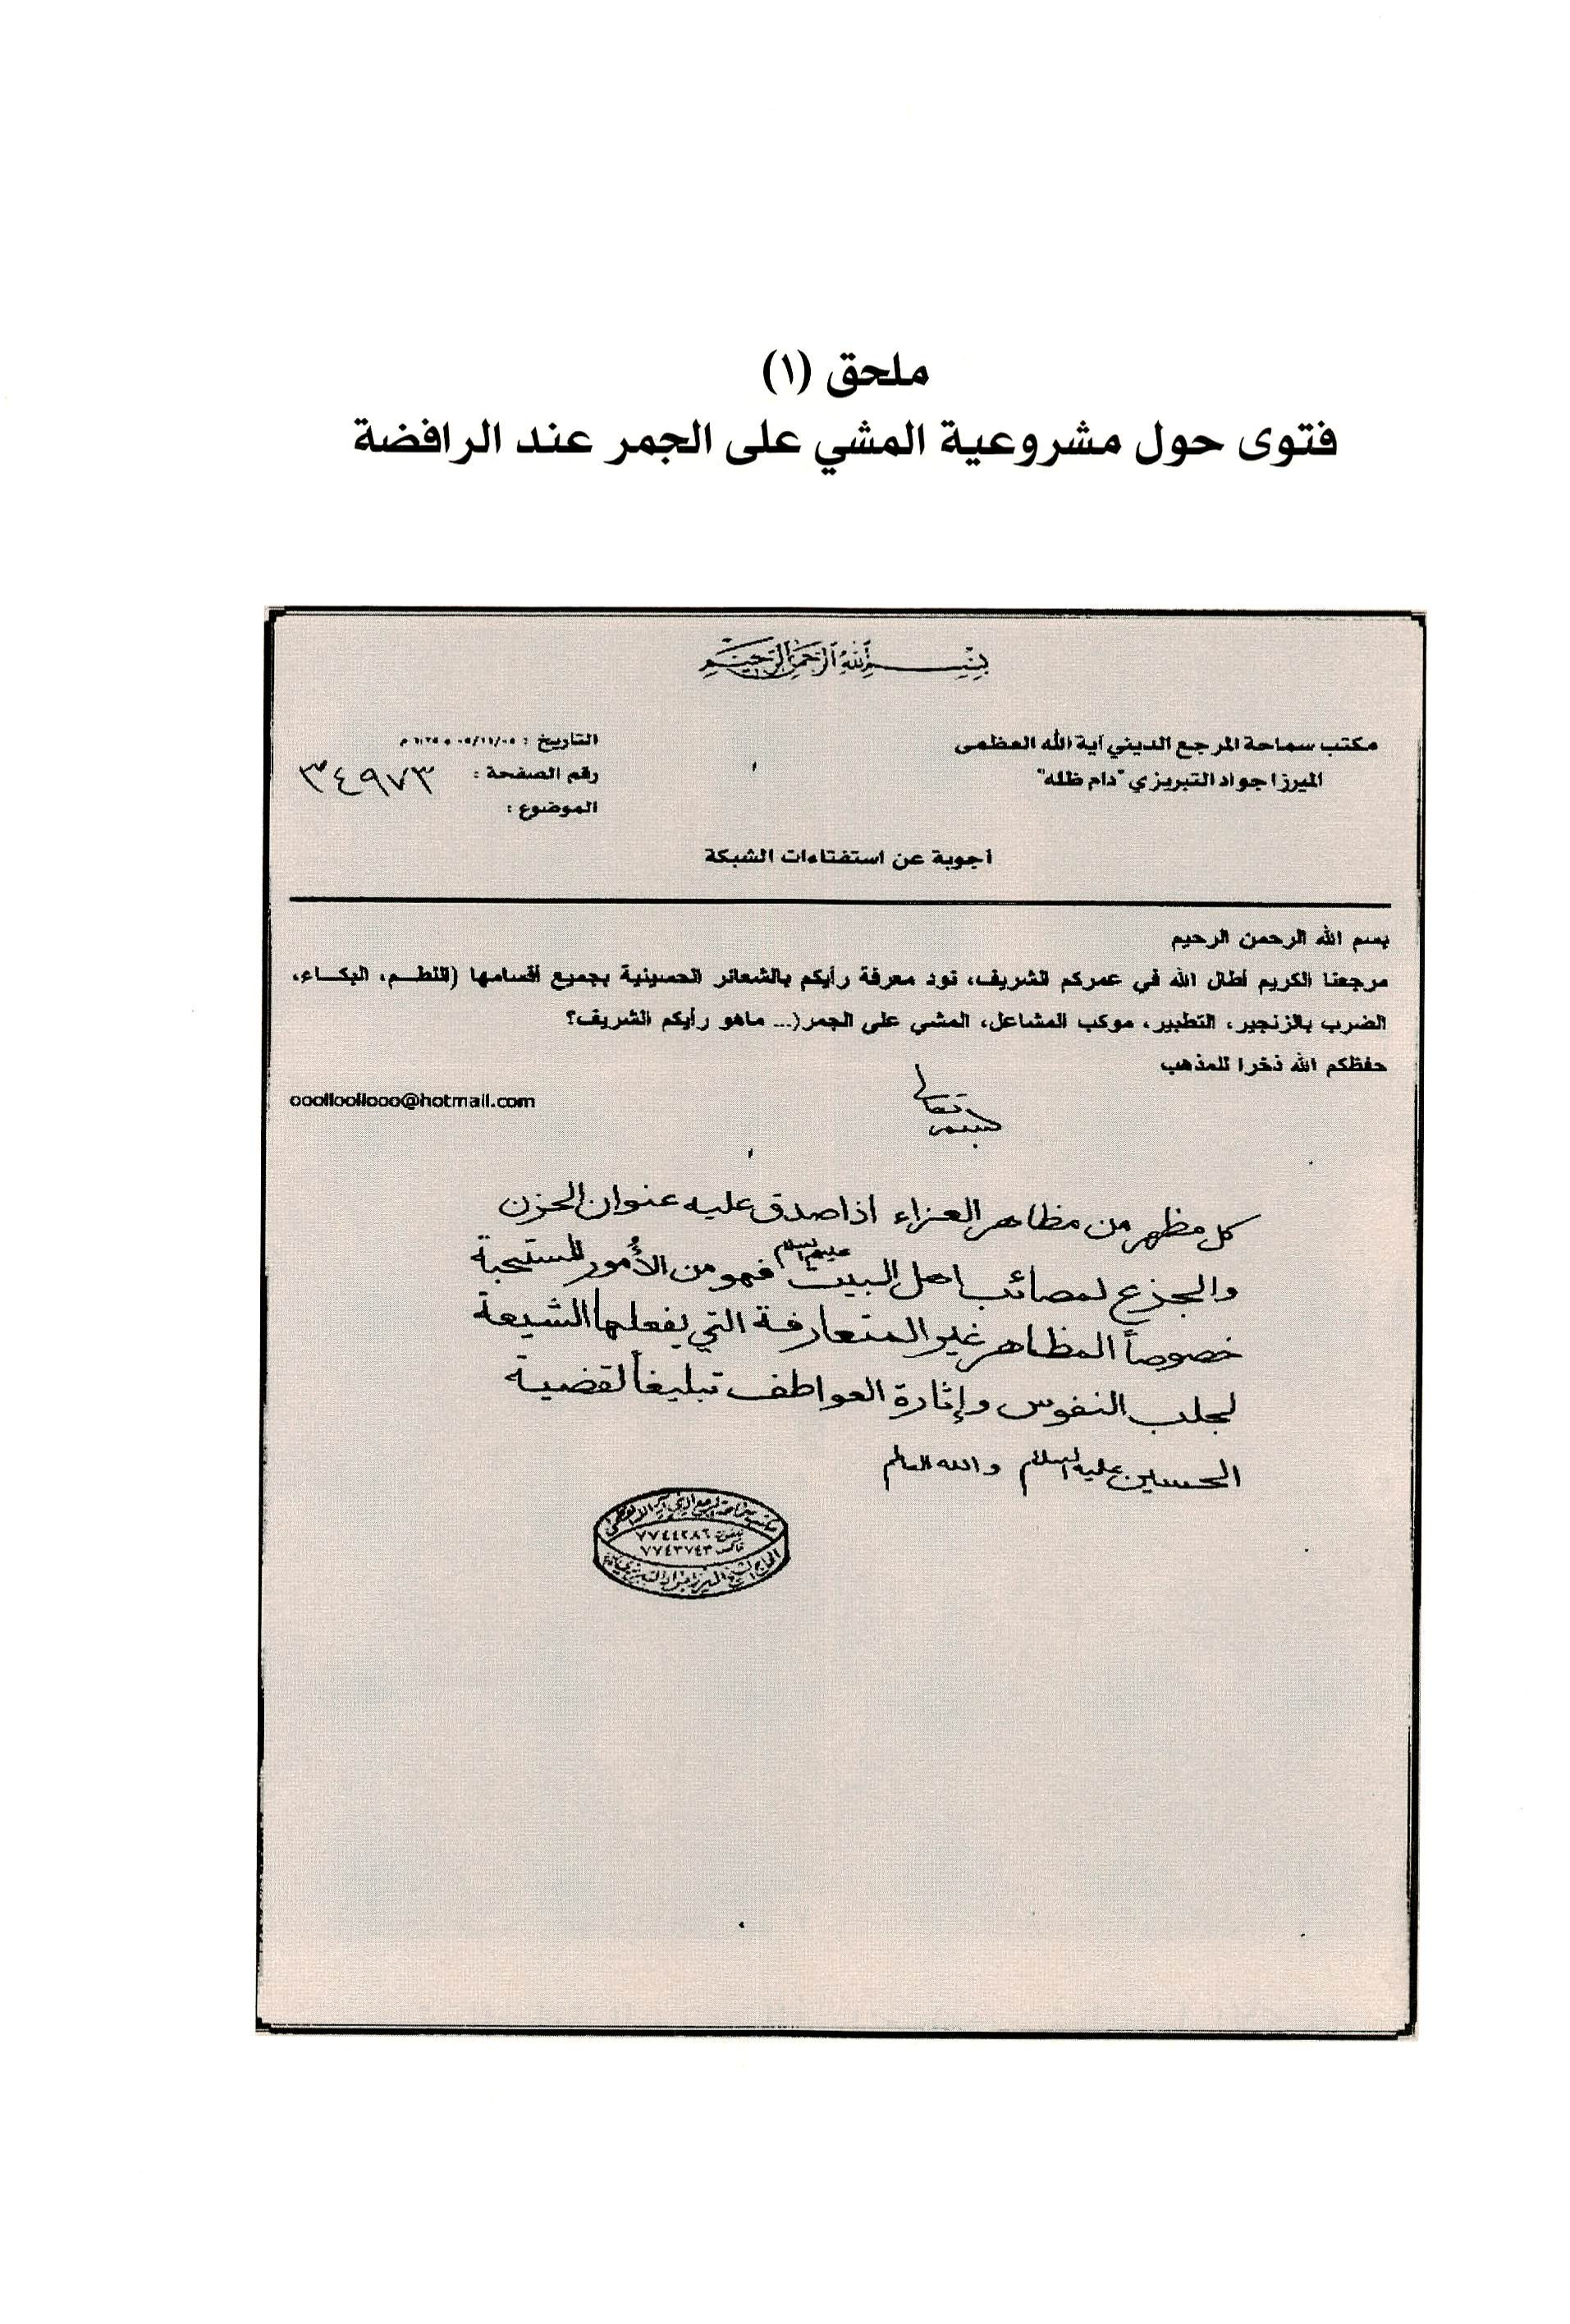 ملحق (١)
فتوى حول مشروعية المشي على الجمر عند الرافضة
بسم الله الرحمن الرحيم
مكتب سماحة المرجع الديني آية الله العظمى
الميرزا جواد التبريزي "دام ظله"
التاريخ :
رقم الصفحة : ٣٤٩٧٣
الموضوع :
أجوبة عن استفتاءات الشبكة
بسم الله الرحمن الرحيم
مرجعنا الكريم أطال الله في عمركم الشريف، نود معرفة رأيكم بالشعائر الحسينية بجميع أقسامها (اللطم، البكاء،
الضرب بالزنجير، التطبير، موكب المشاعل، المشي على الجمر(... ماهو رأيكم الشريف؟
حفظكم الله ذخرا للمذهب
ooolloollooo@hotmail.com
بسمه تعالى
كل مظهر من مظاهر العزاء اذا صدق عليه عنوان الحزن
والجزع لمصائب اهل البيت عليهم السلام فهو من الأُمور المستحبة
خصوصاً المظاهر غير المتعارفة التي يفعلها الشيعة
لجلب النفوس وإثارة العواطف تبليغاً لقضية
الحسين عليه السلام والله العالم
مكتب سماحة المرجع الديني آية الله العظمى
٧٧٤٤٢٨٦
فاكس ٧٧٤٣٧٤٣